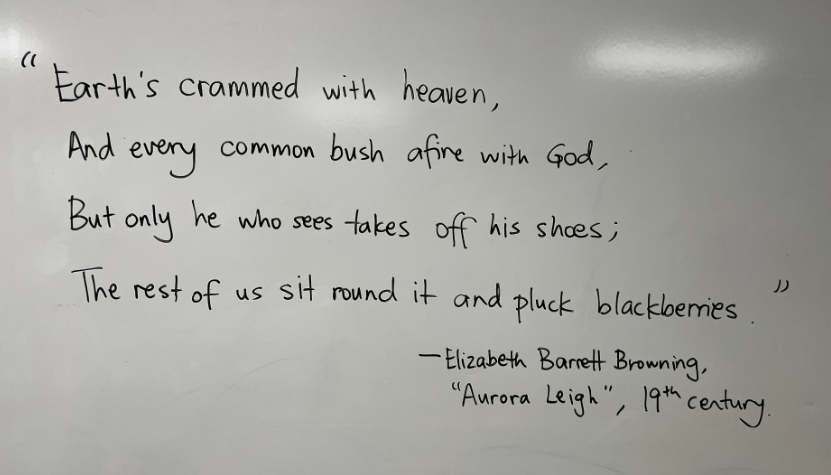 “Earth's crammed with heaven,
And every common bush afire with God,
But only he who sees takes off his shoes;
The rest of us sit round it and pluck blackberries.”
—Elizabeth Barrett Browning,
“Aurora Leigh”, 19th century.